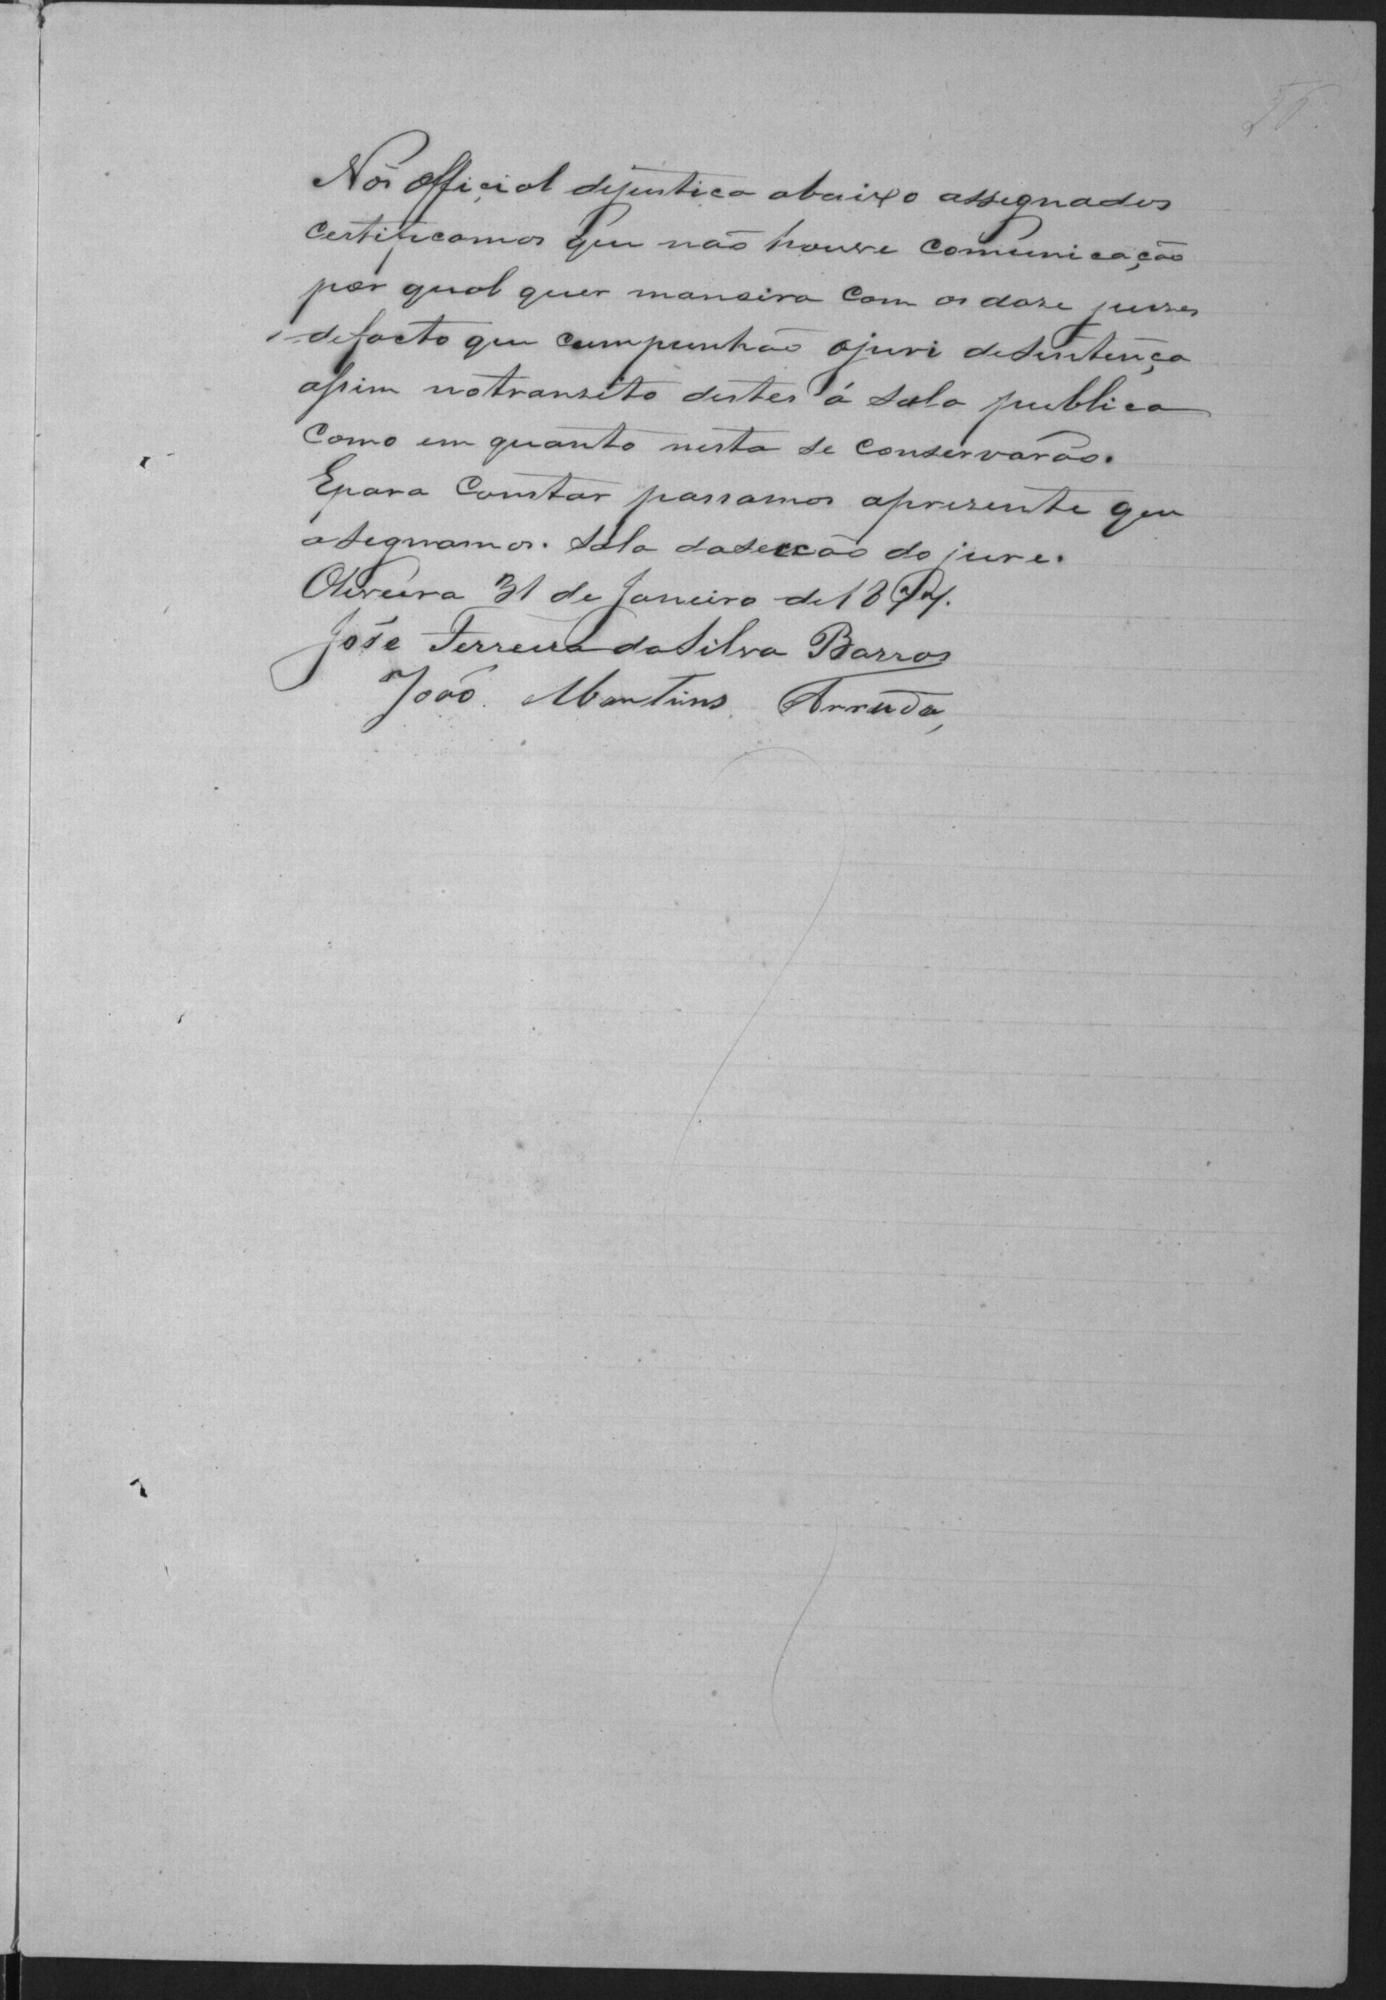 Nós official dejustica abaixo assegnados
certificamos que não houve comunicação
por qual quer maneira com os doze juises
defacto que cumpunhão ojuri desentença
assim notransito destes á sala publica
como em quanto nesta se conservarão.
Epara constar passamos apresente que
asegnamos. Sala dasecção do jure.
Oliveira 31 de Janeiro de 1877.
José Ferreira da Silva Barros
João Martins Arruda,